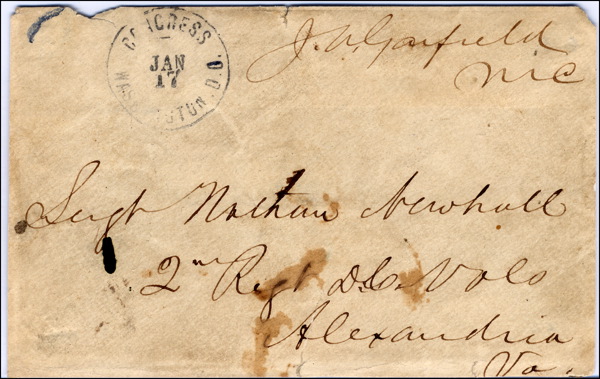 CONGRESS
JAN
17
WASHINGTON. D.C.
J. A. Garfield
MC
Sergt Nathan Newhall
2nd Regt D.C. Vols
Alexandria
Va.